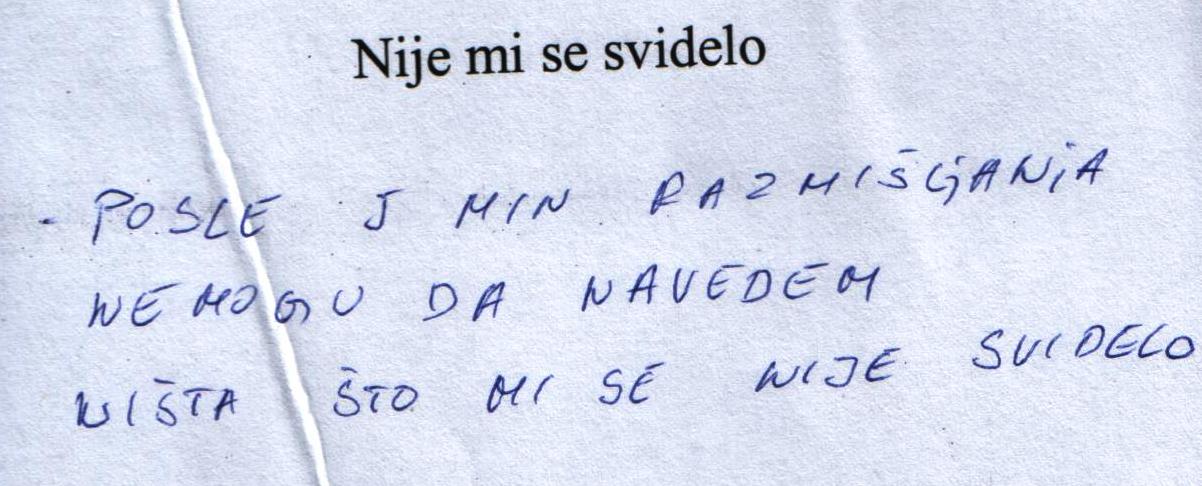 Nije mi se svidelo
- POSLE 5 MIN RAZMIŠLjANjA
NEMOGU DA NAVEDEM
NIŠTA ŠTO MI SE NIJE SVIDELO